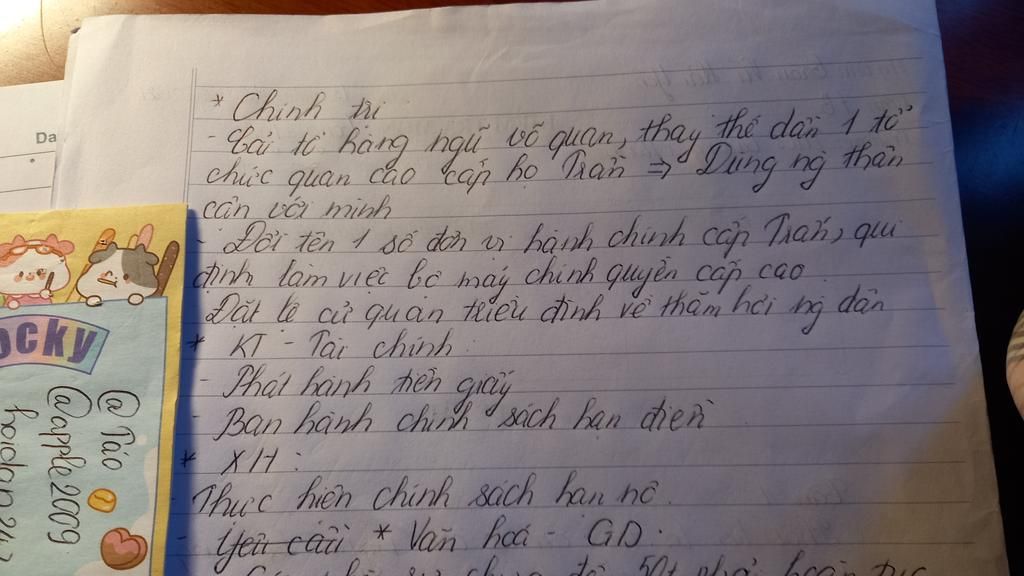 * Chính trị
- Cải tổ hàng ngũ võ quan, thay thế dần 1 tổ
chức quan cao cấp họ Trần ⇒ Dùng ng thân
cận với mình
- Đổi tên 1 số đơn vị hành chính cấp Trấn, qui
định làm việc bộ máy chính quyền cấp cao
Đặt lệ cử quan triều đình về thăm hỏi ng dân
* KT - Tài chính:
- Phát hành tiền giấy
- Ban hành chính sách hạn điền
* XH:
- Thực hiện chính sách hạn nô.
- Yêu cầu * Văn hoá - GD.
Da
OCKY
@Táo
@apple2009